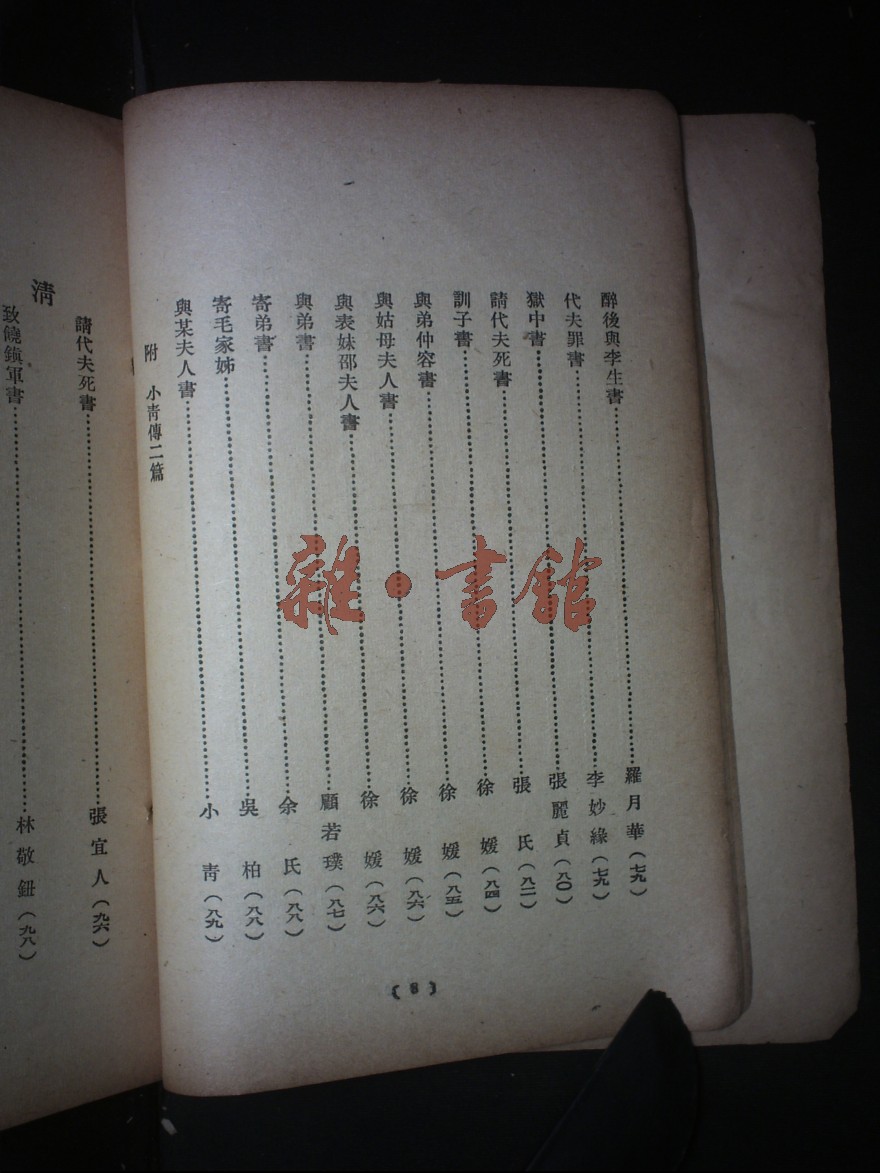 醉後與李生書……羅月華(七九)
代夫罪書……李妙緣(七九)
獄中書……張麗貞(八〇)
請代夫死書……張 氏(八二)
訓子書……徐 媛(八四)
與弟仲容書……徐 媛(八五)
與姑母夫人書……徐 媛(八六)
與表妹邵夫人書……徐 媛(八六)
與弟書……顧若璞(八七)
寄弟書……余 氏(八八)
寄毛家姊……吳 柏(八八)
與某夫人書……小 青(八九)
附 小青傳二篇
(8)
清
請代夫死書……張宜人(九六)
致饒鎮軍書……林敬鈕(九八)
雜·書館